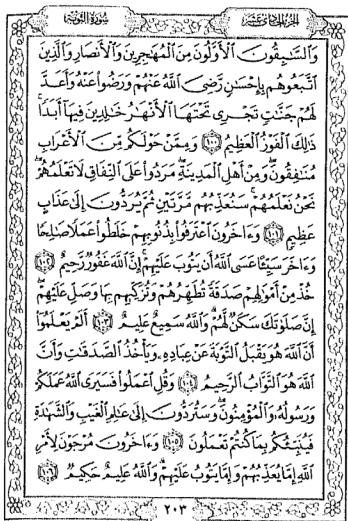 سورة التوبة الجزء الحادي عشر
وَٱلسَّٰبِقُونَ ٱلْأَوَّلُونَ مِنَ ٱلْمُهَٰجِرِينَ وَٱلْأَنصَارِ وَٱلَّذِينَ
ٱتَّبَعُوهُم بِإِحْسَٰنٍ رَّضِىَ ٱللَّهُ عَنْهُمْ وَرَضُوا۟ عَنْهُ وَأَعَدَّ
لَهُمْ جَنَّٰتٍ تَجْرِى تَحْتَهَا ٱلْأَنْهَٰرُ خَٰلِدِينَ فِيهَآ أَبَدًا ۚ
ذَٰلِكَ ٱلْفَوْزُ ٱلْعَظِيمُ ١٠٠ وَمِمَّنْ حَوْلَكُم مِّنَ ٱلْأَعْرَابِ
مُنَٰفِقُونَ ۖ وَمِنْ أَهْلِ ٱلْمَدِينَةِ ۖ مَرَدُوا۟ عَلَى ٱلنِّفَاقِ لَا تَعْلَمُهُمْ ۖ
نَحْنُ نَعْلَمُهُمْ ۚ سَنُعَذِّبُهُم مَّرَّتَيْنِ ثُمَّ يُرَدُّونَ إِلَىٰ عَذَابٍ
عَظِيمٍ ١٠١ وَءَاخَرُونَ ٱعْتَرَفُوا۟ بِذُنُوبِهِمْ خَلَطُوا۟ عَمَلًا صَٰلِحًا
وَءَاخَرَ سَيِّئًا عَسَى ٱللَّهُ أَن يَتُوبَ عَلَيْهِمْ ۚ إِنَّ ٱللَّهَ غَفُورٌ رَّحِيمٌ ١٠٢
خُذْ مِنْ أَمْوَٰلِهِمْ صَدَقَةً تُطَهِّرُهُمْ وَتُزَكِّيهِم بِهَا وَصَلِّ عَلَيْهِمْ ۖ
إِنَّ صَلَوٰتَكَ سَكَنٌ لَّهُمْ ۗ وَٱللَّهُ سَمِيعٌ عَلِيمٌ ١٠٣ أَلَمْ يَعْلَمُوٓا۟
أَنَّ ٱللَّهَ هُوَ يَقْبَلُ ٱلتَّوْبَةَ عَنْ عِبَادِهِۦ وَيَأْخُذُ ٱلصَّدَقَٰتِ وَأَنَّ
ٱللَّهَ هُوَ ٱلتَّوَّابُ ٱلرَّحِيمُ ١٠٤ وَقُلِ ٱعْمَلُوا۟ فَسَيَرَى ٱللَّهُ عَمَلَكُمْ
وَرَسُولُهُۥ وَٱلْمُؤْمِنُونَ ۖ وَسَتُرَدُّونَ إِلَىٰ عَٰلِمِ ٱلْغَيْبِ وَٱلشَّهَٰدَةِ
فَيُنَبِّئُكُم بِمَا كُنتُمْ تَعْمَلُونَ ١٠٥ وَءَاخَرُونَ مُرْجَوْنَ لِأَمْرِ
ٱللَّهِ إِمَّا يُعَذِّبُهُمْ وَإِمَّا يَتُوبُ عَلَيْهِمْ ۗ وَٱللَّهُ عَلِيمٌ حَكِيمٌ ١٠٦
٢٠٣